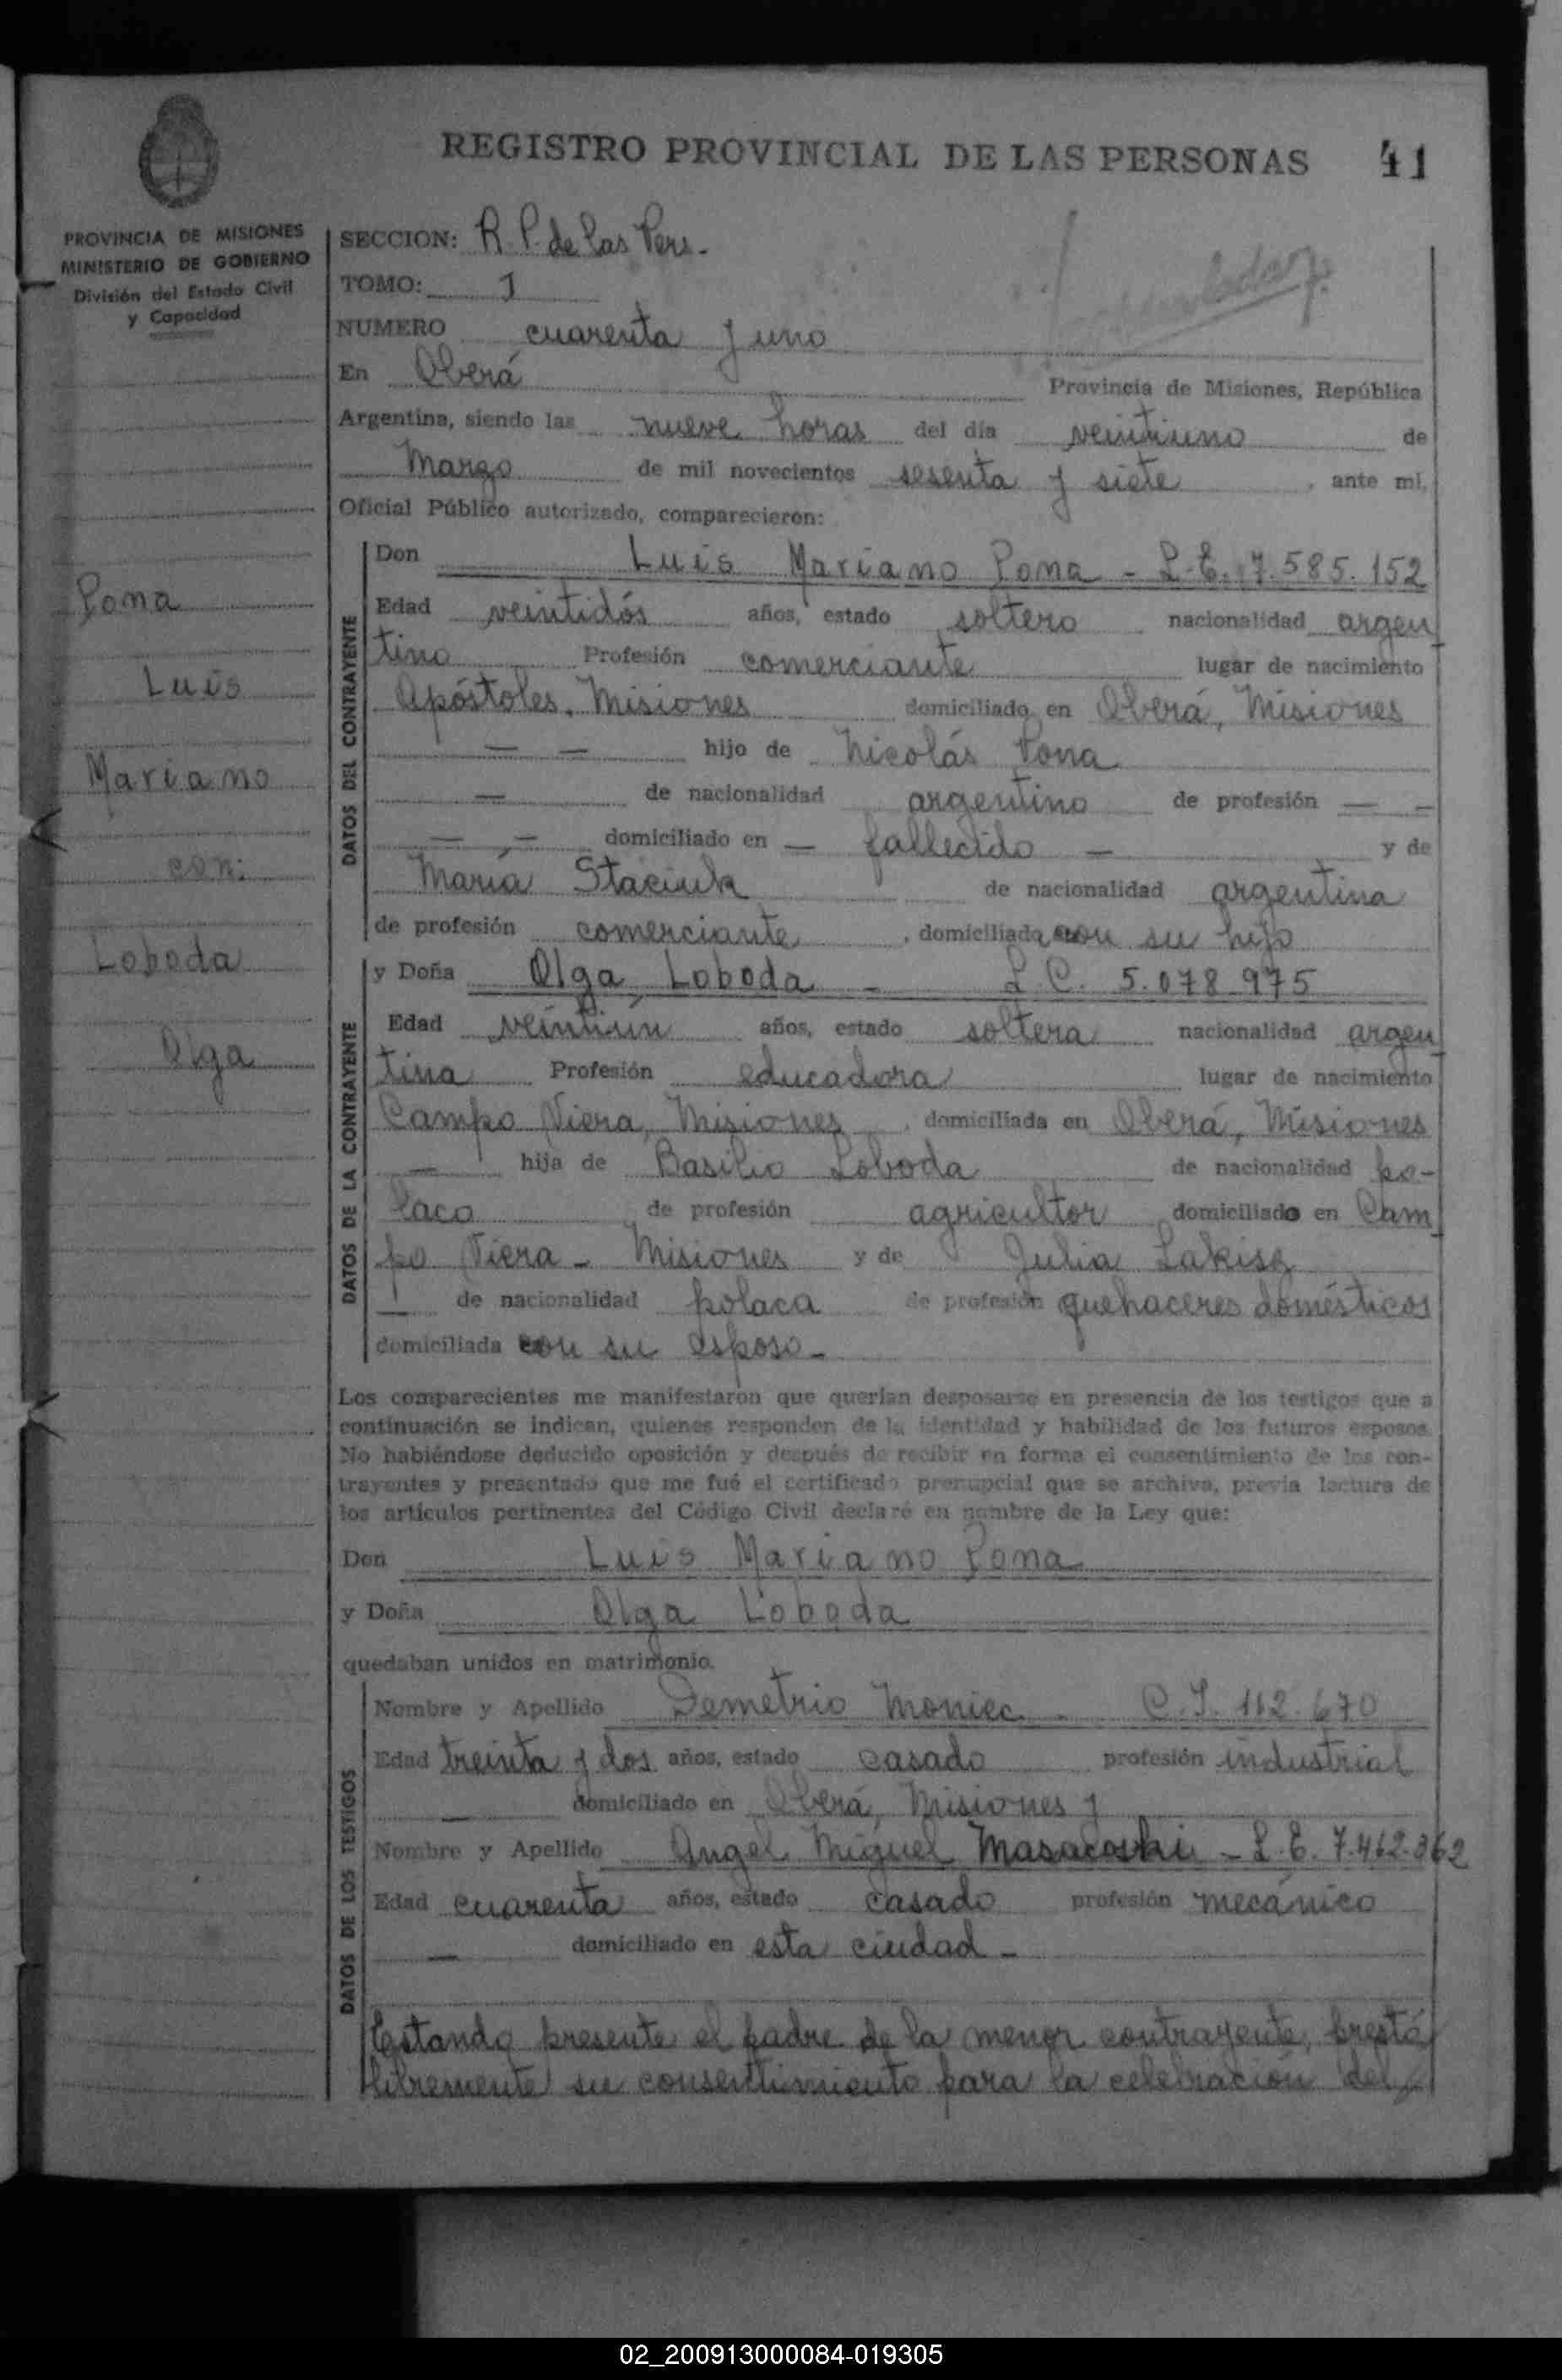 REGISTRO PROVINCIAL DE LAS PERSONAS 41
PROVINCIA DE MISIONES
MINISTERIO DE GOBIERNO
División del Estado Civil
y Capacidad
SECCION: R. P. de las Pers.
TOMO: I
NUMERO cuarenta y uno
En Oberá Provincia de Misiones, República
Argentina, siendo las nueve horas del día veintiuno de
Marzo de mil novecientos sesenta y siete, ante mí,
Oficial Público autorizado, comparecieron:
Pona
Luis
Mariano
con:
Loboda
Olga
DATOS DEL CONTRAYENTE
Don Luis Mariano Pona - L.E. 7.585.152
Edad veintidós años, estado soltero nacionalidad argen
tino Profesión comerciante lugar de nacimiento
Apóstoles, Misiones domiciliado en Oberá, Misiones
— — hijo de Nicolás Pona
— de nacionalidad argentino de profesión — —
— — domiciliado en — fallecido — y de
María Staciuk de nacionalidad argentina
de profesión comerciante, domiciliada con su hijo
DATOS DE LA CONTRAYENTE
y Doña Olga Loboda - L.C. 5.078.975
Edad veintiún años, estado soltera nacionalidad argen
tina Profesión educadora lugar de nacimiento
Campo Viera, Misiones, domiciliada en Oberá, Misiones
— hija de Basilio Loboda de nacionalidad po-
laco de profesión agricultor domiciliado en Cam
po Viera - Misiones y de Julia Lakisz
— de nacionalidad polaca de profesión quehaceres domésticos
domiciliada con su esposo -
Los comparecientes me manifestaron que querían desposarse en presencia de los testigos que a
continuación se indican, quienes responden de la identidad y habilidad de los futuros esposos.
No habiéndose deducido oposición y después de recibir en forma el consentimiento de los con-
trayentes y presentado que me fué el certificado prenupcial que se archiva, previa lectura de
los artículos pertinentes del Código Civil declaré en nombre de la Ley que:
Don Luis Mariano Pona
y Doña Olga Loboda
quedaban unidos en matrimonio.
DATOS DE LOS TESTIGOS
Nombre y Apellido Demetrio Moniec - C.I. 112.670
Edad treinta y dos años, estado casado profesión industrial
— domiciliado en Oberá, Misiones y
Nombre y Apellido Angel Miguel Masacoski - L.E. 7.462.362
Edad cuarenta años, estado casado profesión mecánico
— domiciliado en esta ciudad -
Estando presente el padre de la menor contrayente, prestó
libremente su consentimiento para la celebración del
02_200913000084-019305